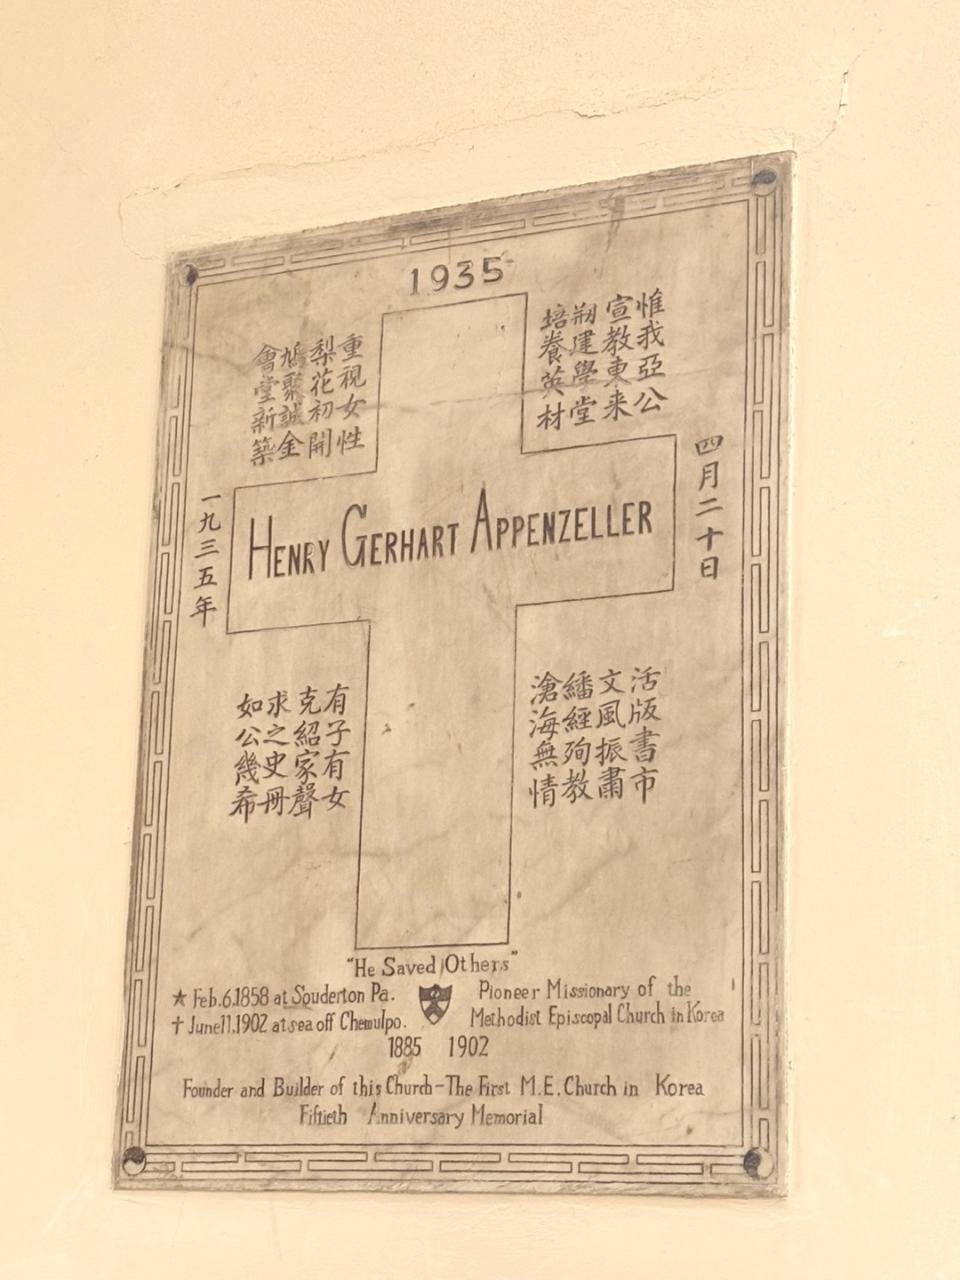 1935
惟我亞公
宣教東来
刱建學堂
培養英材
重視女性
梨花初開
鳩聚誠金
會堂新築
四月二十日
HENRY GERHART APPENZELLER
一九三五年
活版書市
文風振肅
繙經殉教
滄海無情
有子有女
克紹家聲
求之史冊
如公幾希
"He Saved Others"
★ Feb.6.1858 at Souderton Pa.
✝ June11.1902 at sea off Chemulpo.
Pioneer Missionary of the
Methodist Episcopal Church in Korea
1885 1902
Founder and Builder of this Church-The First M.E.Church in Korea
Fiftieth Anniversary Memorial